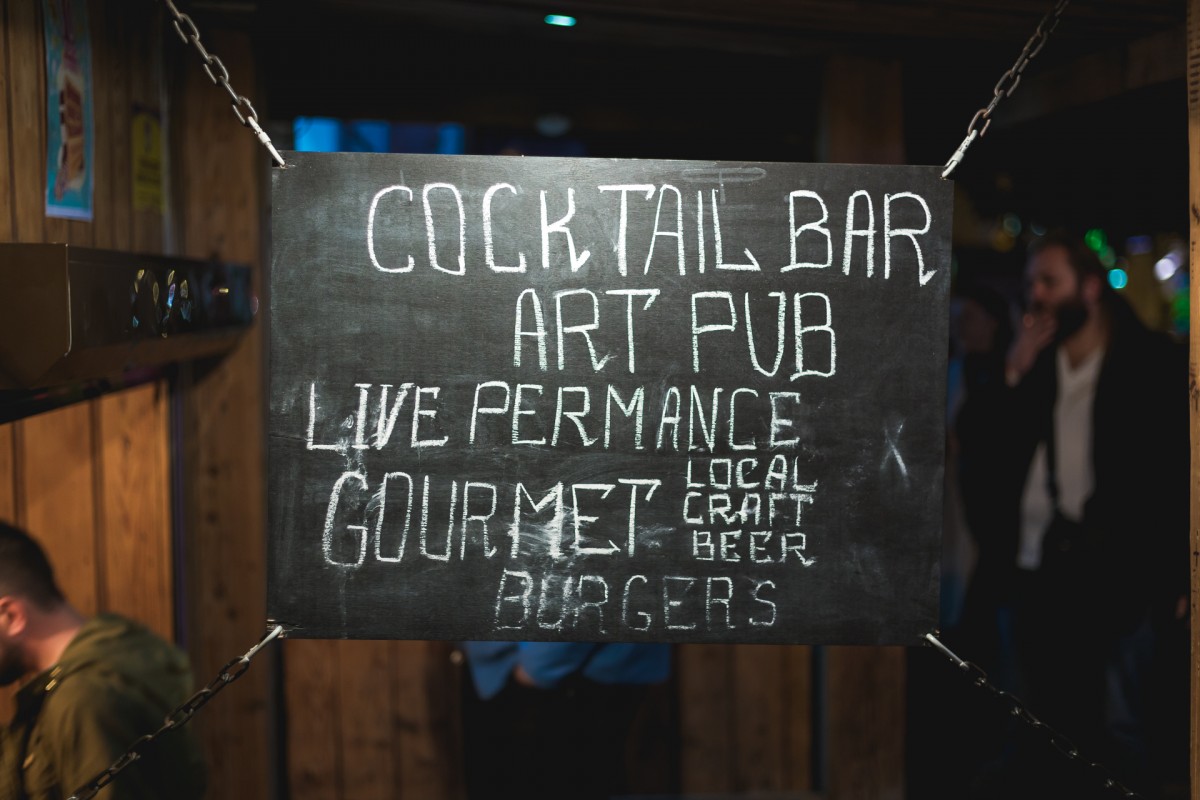 COCKTAIL BAR
ART PUB
LIVE PERMANCE
GOURMET
LOCAL
CRAFT
BEER
BURGERS